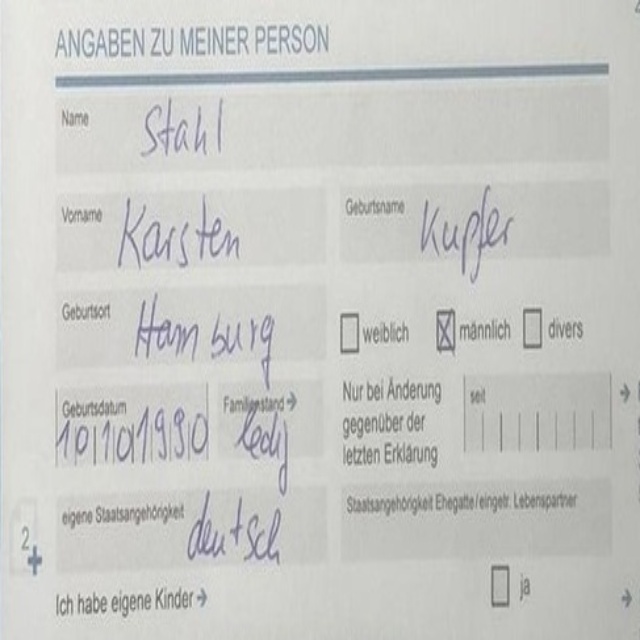 ANGABEN ZU MEINER PERSON
Name Stahl
Vorname Karsten
Geburtsname Kupfer
Geburtsort Hamburg
weiblich männlich divers
Geburtsdatum 10101990
Familienstand → ledig
Nur bei Änderung
gegenüber der
letzten Erklärung
seit
eigene Staatsangehörigkeit deutsch
Staatsangehörigkeit Ehegatte/eingetr. Lebenspartner
2
Ich habe eigene Kinder →
ja